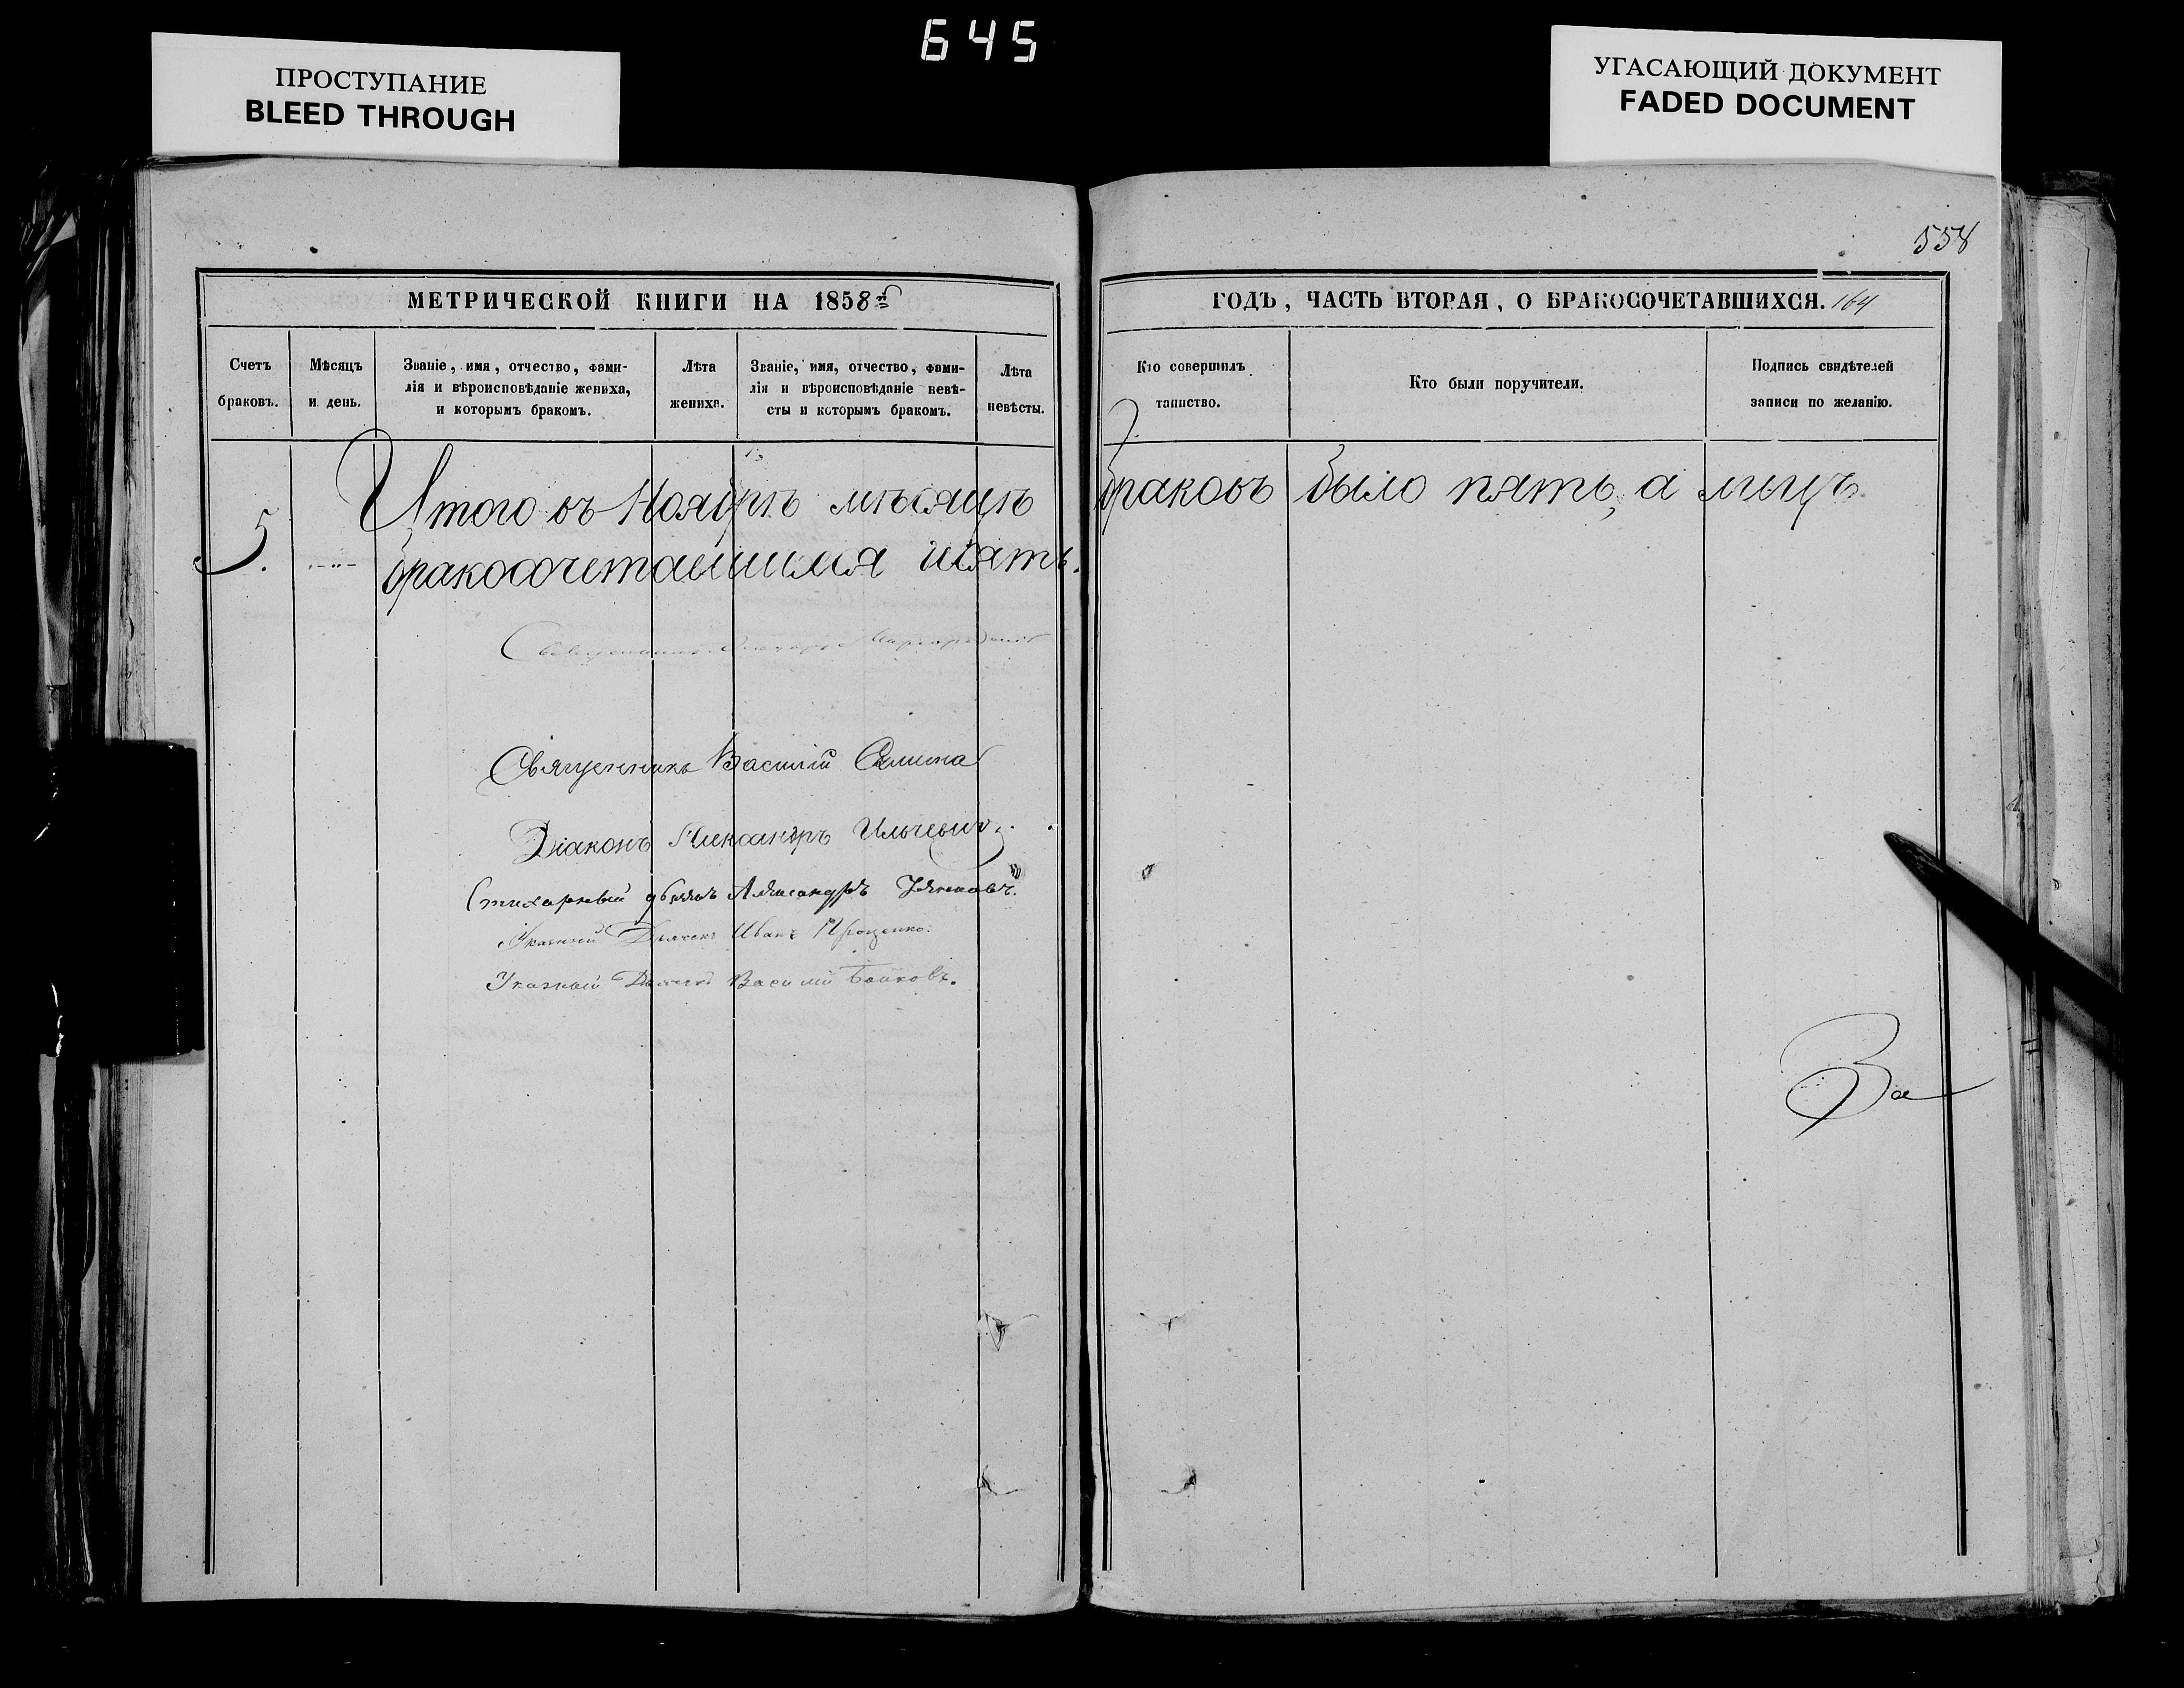 645
ПРОСТУПАНИЕ
BLEED THROUGH
УГАСАЮЩИЙ ДОКУМЕНТ
FADED DOCUMENT
МЕТРИЧЕСКОЙ КНИГИ НА 1858й
Счетъ браковъ.
Мѣсяцъ и день.
Званіе, имя, отчество, фами-
лія и вѣроисповѣданіе жениха,
и которымъ бракомъ.
Лѣта жениха.
Званіе, имя, отчество, фами-
лія и вѣроисповѣданіе невѣ-
сты и которымъ бракомъ.
Лѣта невѣсты.
5.
Итого въ Ноябрѣ мѣсяцѣ
бракосочетавшихся пять.
Священникъ
Священникъ Василій
Діаконъ Александръ Ильчевичъ.
Стихарный дьякъ Александръ
Указный Дьячекъ Иванъ Проценко.
Указный Дьячекъ Василій Байковъ.
558
ГОДЪ, ЧАСТЬ ВТОРАЯ, О БРАКОСОЧЕТАВШИХСЯ. 164
Кто совершилъ
таинство.
Кто были поручители.
Подпись свидѣтелей
записи по желанію.
браковъ было пять, а лицъ
Ва